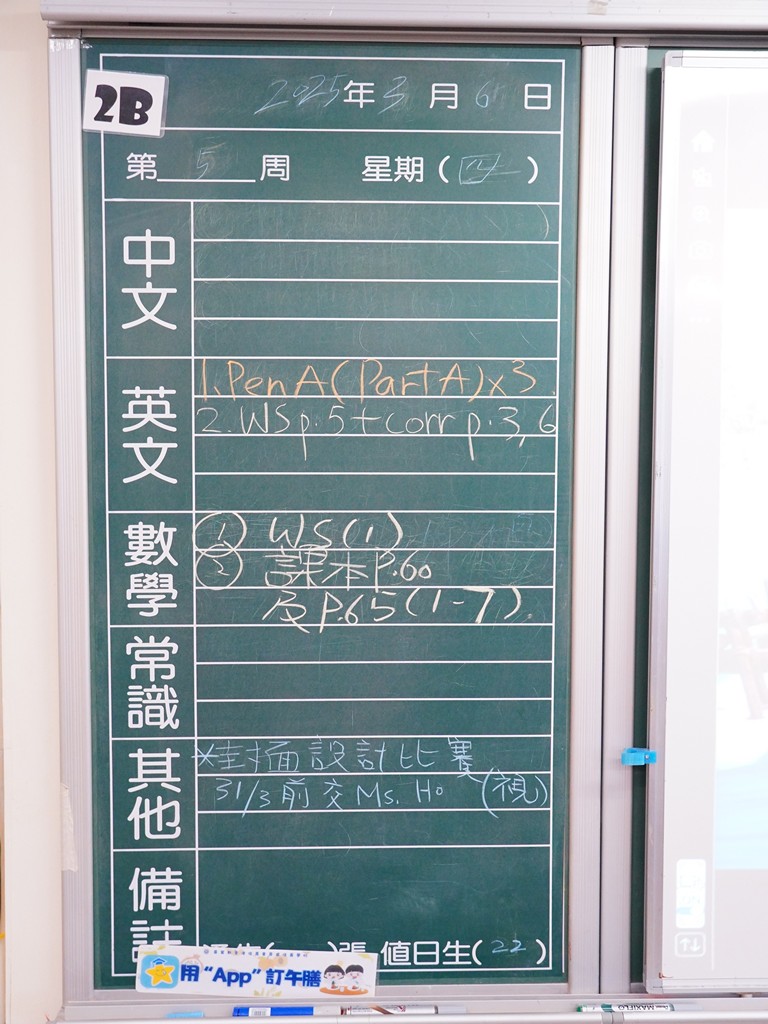 2B
2025年3月6日
第5周 星期(四)
中文
英文
1.PenA(PartA)x3.
2.WSp.5+corr p.3,6
數學
① WS(1)
② 課本P.60
及P.65(1-7).
常識
其他
*封面設計比賽
31/3前交Ms. Ho (視)
備註
通告( )張 值日生(22)
用“App”訂午膳
MAXIFLO